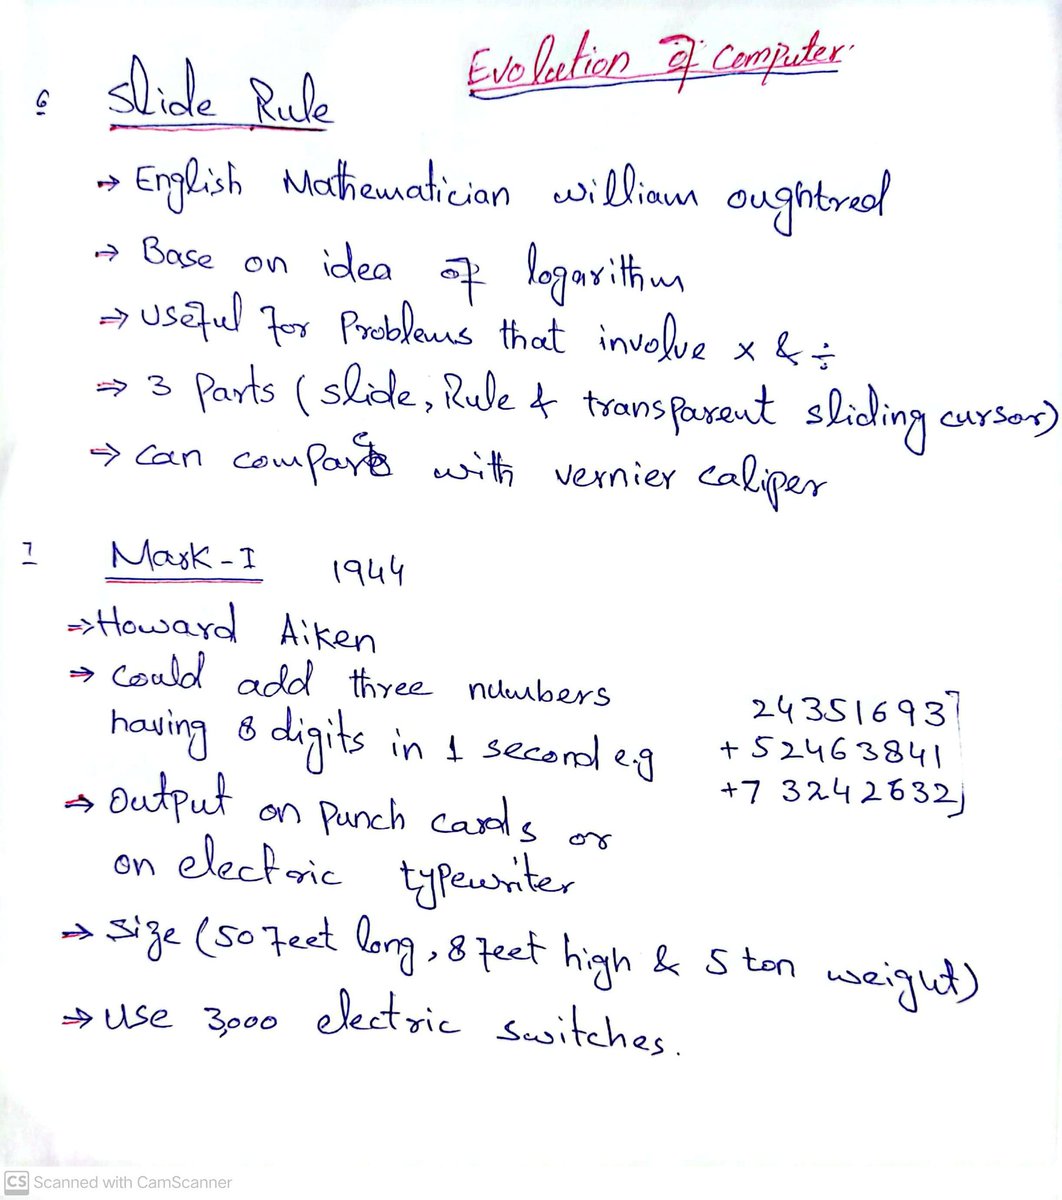 Evolution of computer
6 Slide Rule
→ English Mathematician william oughtred
→ Base on idea of logarithm
⇒ useful for Problems that involve x & ÷
⇒ 3 Parts (slide, Rule & transparent sliding cursor)
⇒ can compare with vernier caliper
7 Mark-I 1944
⇒ Howard Aiken
⇒ Could add three numbers
having 8 digits in 1 second e.g
24351693
+ 52463841
+7 3242632
⇒ Output on Punch cards or
on electric typewriter
⇒ Size (50 feet long, 8 feet high & 5 ton weigut)
⇒ use 3,000 electric switches.
CS Scanned with CamScanner